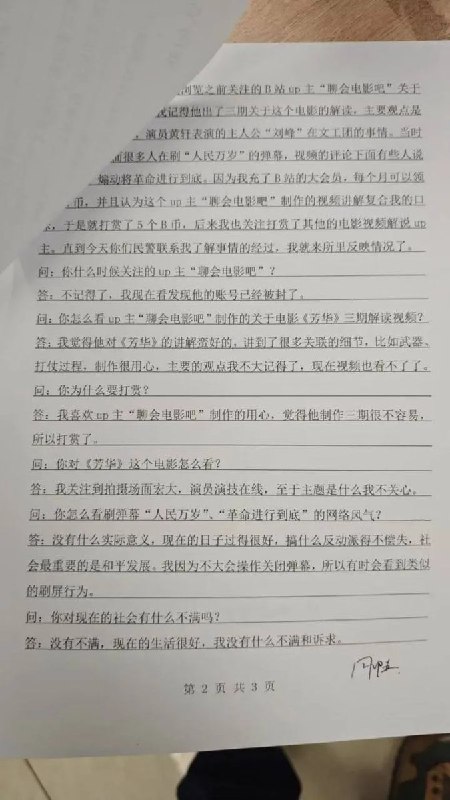 浏览之前关注的B站up主“聊会电影吧”关于
我记得他出了三期关于这个电影的解读，主要观点是
，演员黄轩表演的主人公“刘峰”在文工团的事情。当时
面很多人在刷“人民万岁”的弹幕，视频的评论下面有些人说
煽动将革命进行到底。因为我充了B站的大会员，每个月可以领
币，并且认为这个up主“聊会电影吧”制作的视频讲解复合我的口
，于是就打赏了5个B币，后来我也关注打赏了其他的电影视频解说up
主。直到今天你们民警联系我了解事情的经过，我就来所里反映情况了。
问：你什么时候关注的up主“聊会电影吧”？
答：不记得了，我现在看发现他的账号已经被封了。
问：你怎么看up主“聊会电影吧”制作的关于电影《芳华》三期解读视频？
答：我觉得他对《芳华》的讲解蛮好的，讲到了很多关联的细节，比如武器、
打仗过程，制作很用心，主要的观点我不大记得了，现在视频也看不了了。
问：你为什么要打赏？
答：我喜欢up主“聊会电影吧”制作的用心，觉得他制作三期很不容易，
所以打赏了。
问：你对《芳华》这个电影怎么看？
答：我关注到拍摄场面宏大，演员演技在线，至于主题是什么我不关心。
问：你怎么看刷弹幕“人民万岁”、“革命进行到底”的网络风气？
答：没有什么实际意义，现在的日子过得很好，搞什么反动派得不偿失，社
会最重要的是和平发展。我因为不大会操作关闭弹幕，所以有时会看到类似
的刷屏行为。
问：你对现在的社会有什么不满吗？
答：没有不满，现在的生活很好，我没有什么不满和诉求。
第 2 页 共 3 页